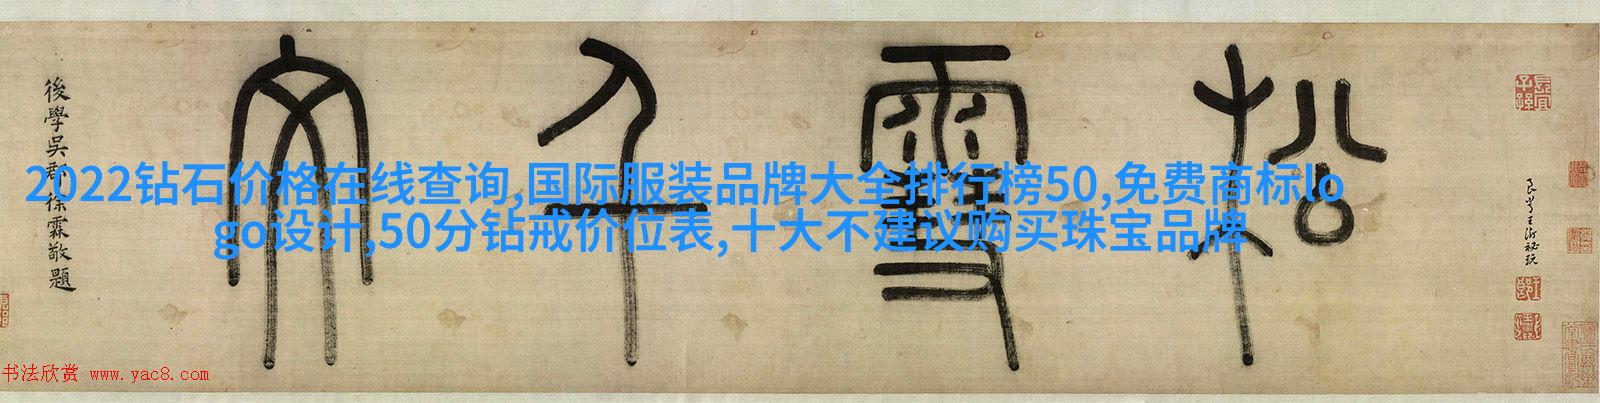 長宜子孫
良常王澍祕玩
松雪千文
後學吳郡徐霖敬題
2022钻石价格在线查询,国际服装品牌大全排行榜50,免费商标lo
go设计,50分钻戒价位表,十大不建议购买珠宝品牌
书法欣赏 www.yac8.com